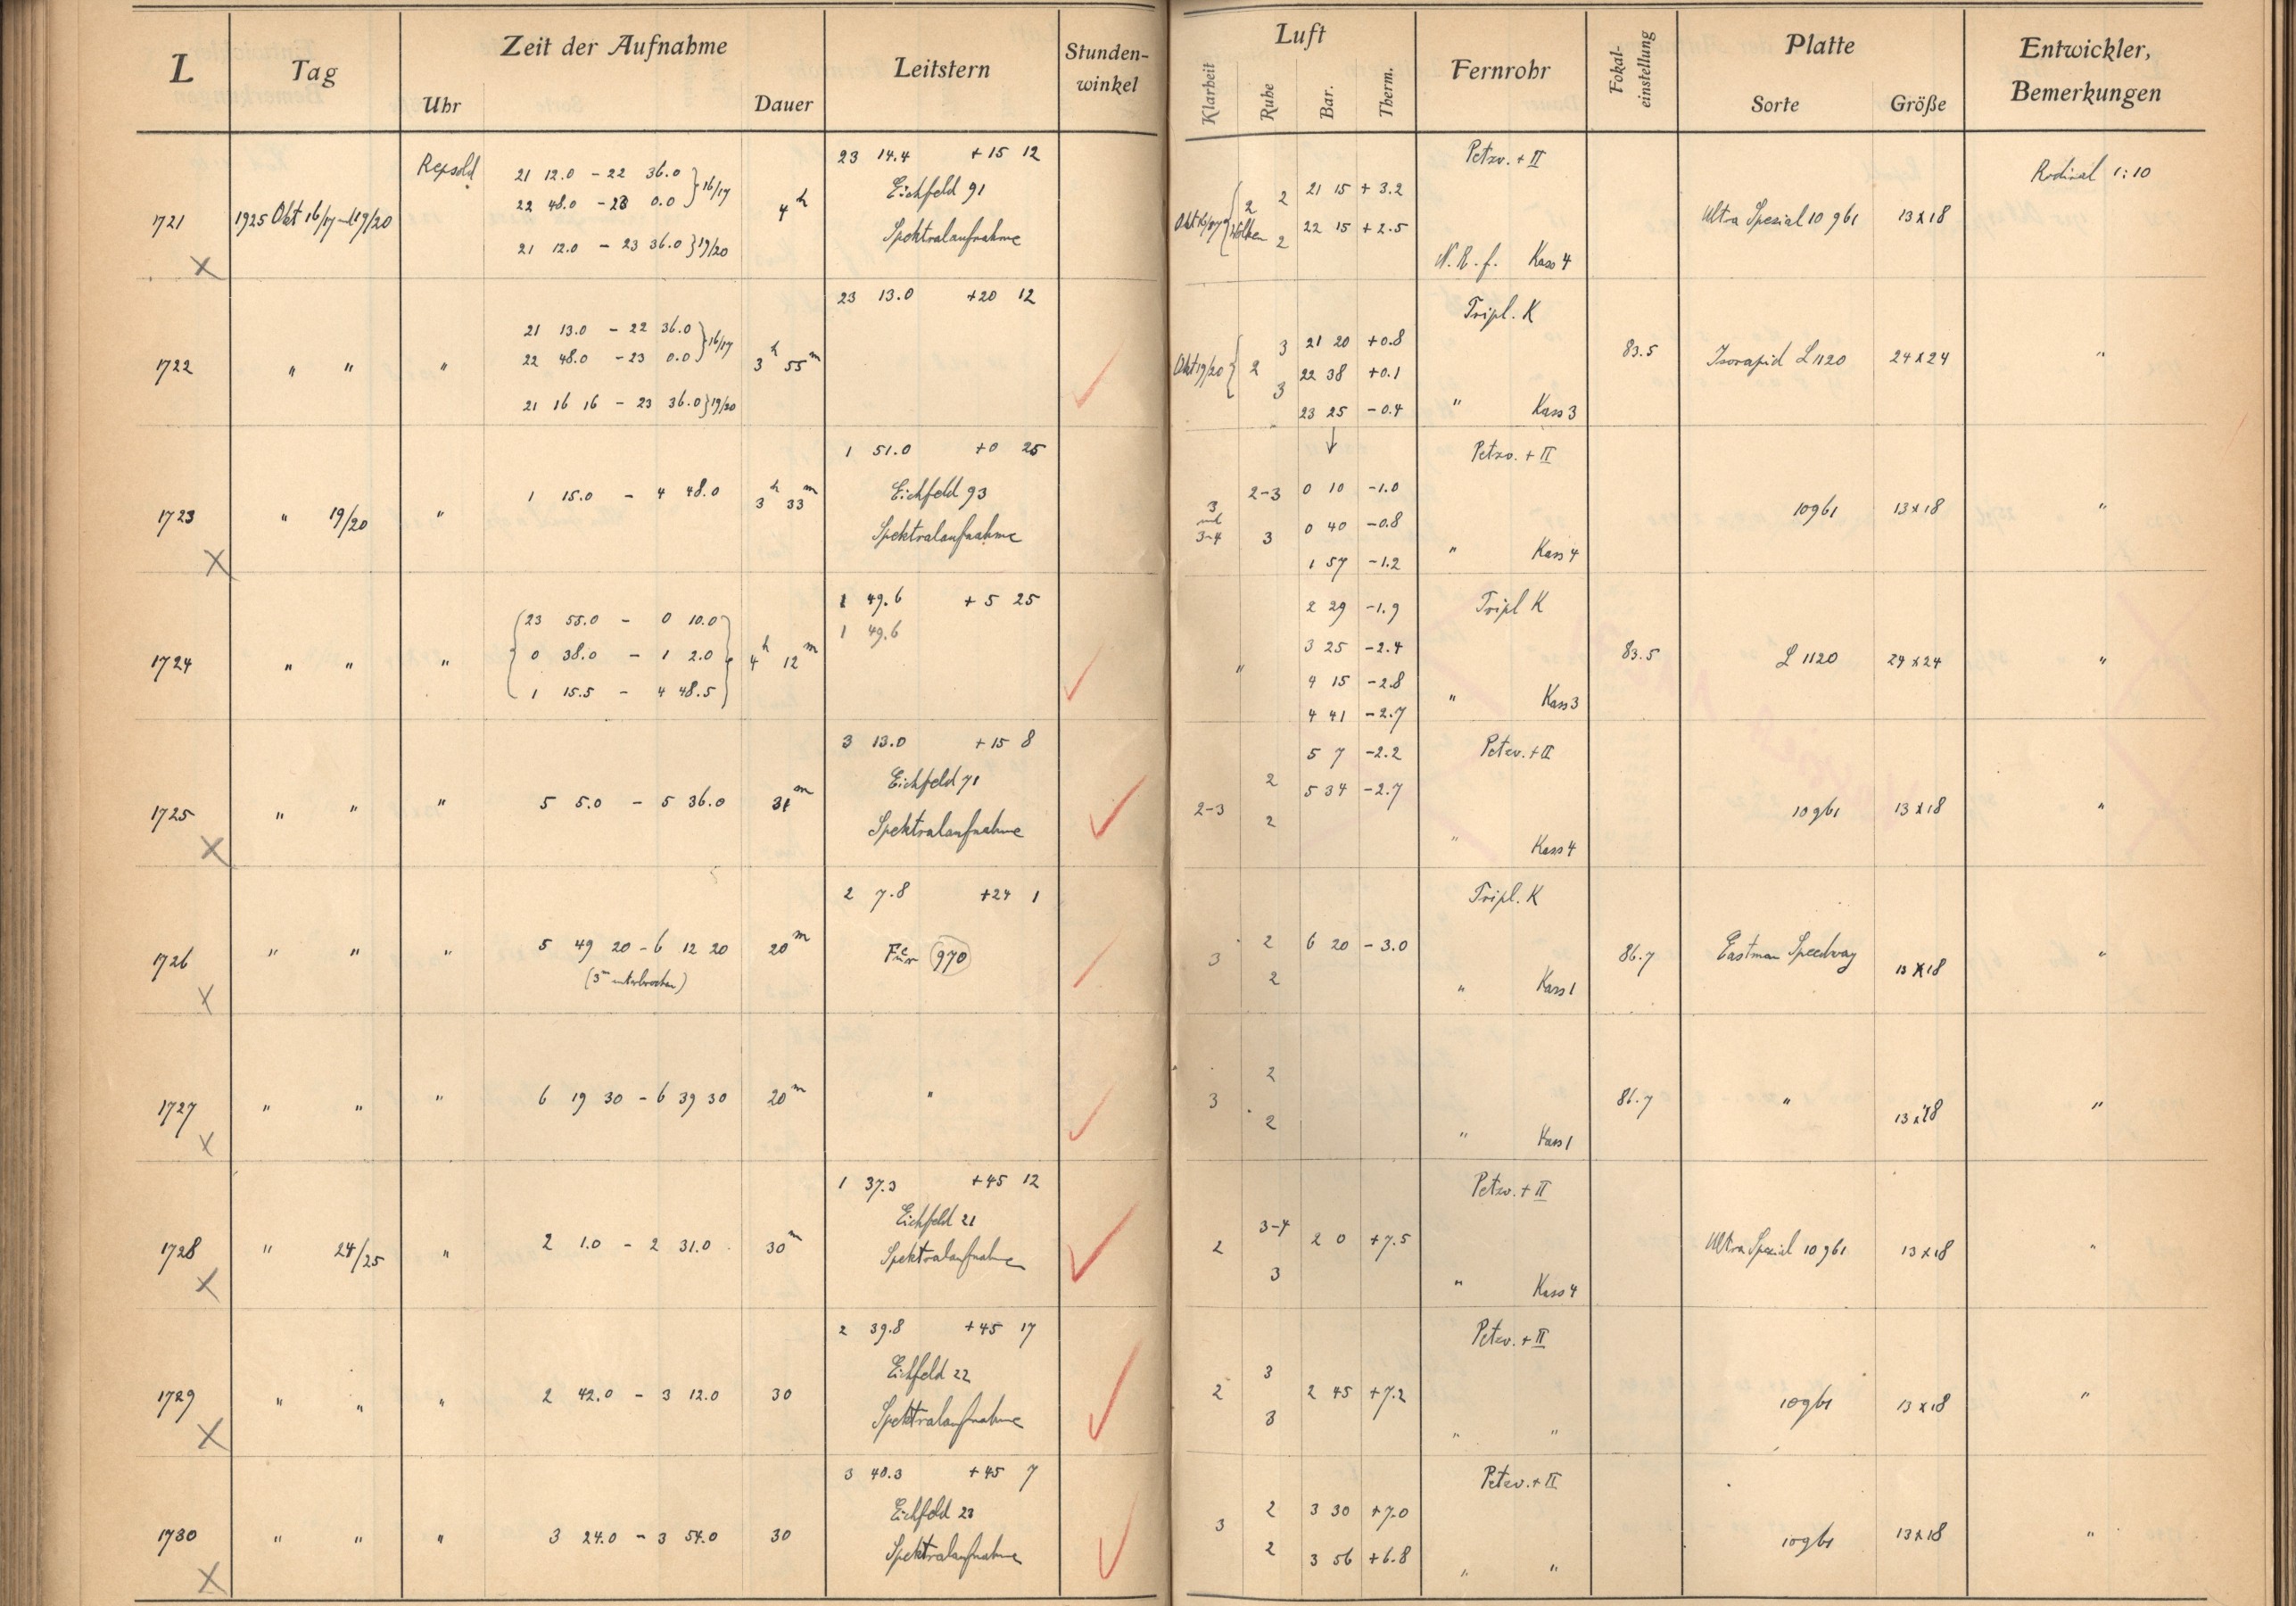 L Tag Zeit der Aufnahme Leitstern Stunden-winkel Luft Fernrohr Fokal-einstellung Platte Entwickler, Bemerkungen
Uhr Dauer Klarheit Ruhe Bar. Therm. Sorte Größe
23 14.4 +15 12 Petzv. + II
Repsold 21 12.0 - 22 36.0 } 16/17 Eichfeld 91 2 21 15 + 3.2 Rodinal 1:10
22 48.0 - 23 0.0
1721 1925 Okt 16/17 19/20 4h Okt 16/17 { 2 Wolken 22 15 + 2.5 Ultra Spezial 10961 13x18
21 12.0 - 23 36.0 } 19/20 Spektralaufnahme 2
X N.R.f. Kass 4
23 13.0 +20 12 Tripl. K
21 13.0 - 22 36.0 } 16/17 3 21 20 +0.8
22 48.0 - 23 0.0
1722 " " " 3h 55m Okt 19/20 { 2 22 38 +0.1 83.5 Isorapid L 1120 24x24 "
21 16 16 - 23 36.0 } 19/20 3 23 25 -0.4 " Kass 3
1 51.0 +0 25 Petzv. + II
1 15.0 - 4 48.0 3h 33m Eichfeld 93 2-3 0 10 -1.0
1723 " 19/20 " Spektralaufnahme 3 und 3-4 3 0 40 -0.8 10961 13x18 "
X 1 57 -1.2 " Kass 4
1 49.6 + 5 25 2 29 -1.9 Tripl K
1 49.6
{ 23 55.0 - 0 10.0 }
1724 " " " 0 38.0 - 1 2.0 4h 12m " 3 25 -2.4 83.5 L 1120 24x24 "
1 15.5 - 4 48.5 4 15 -2.8 " Kass 3
4 41 -2.7
3 13.0 +15 8 5 7 -2.2 Petzv. + II
Eichfeld 71 2 5 34 -2.7
1725 " " " 5 5.0 - 5 36.0 31m Spektralaufnahme 2-3 2 10961 13x18 "
X " Kass 4
2 7.8 +24 1 Tripl. K
1726 " " " 5 49 20 - 6 12 20 20m 970 3 2 6 20 - 3.0 86.7 Eastman Speedway 13x18 "
X (3m unterbrochen) 2 " Kass 1
1727 " " " 6 19 30 - 6 39 30 20m " 3 2 86.7 " 13x18 "
X 2 " Kass 1
1 37.3 +45 12 Petzv. + II
Eichfeld 21 3-4
1728 " 24/25 " 2 1.0 - 2 31.0 30m Spektralaufnahme 2 2 0 +7.5 Ultra Spezial 10961 13x18 "
X 3 " Kass 4
2 39.8 +45 17 Petzv. + II
Eichfeld 22 3
1729 " " " 2 42.0 - 3 12.0 30 Spektralaufnahme 2 2 45 +7.2 10961 13x18 "
X 3 " "
3 40.3 +45 7 Petzv. + II
Eichfeld 23 2 3 30 +7.0
1730 " " " 3 24.0 - 3 54.0 30 Spektralaufnahme 3 2 3 56 +6.8 10961 13x18 "
X " "